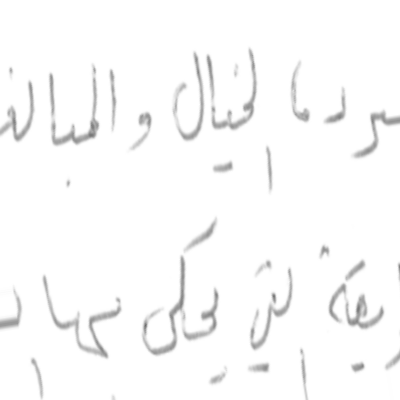 الخيال و المبالغ
ريقة التي يحكى بها